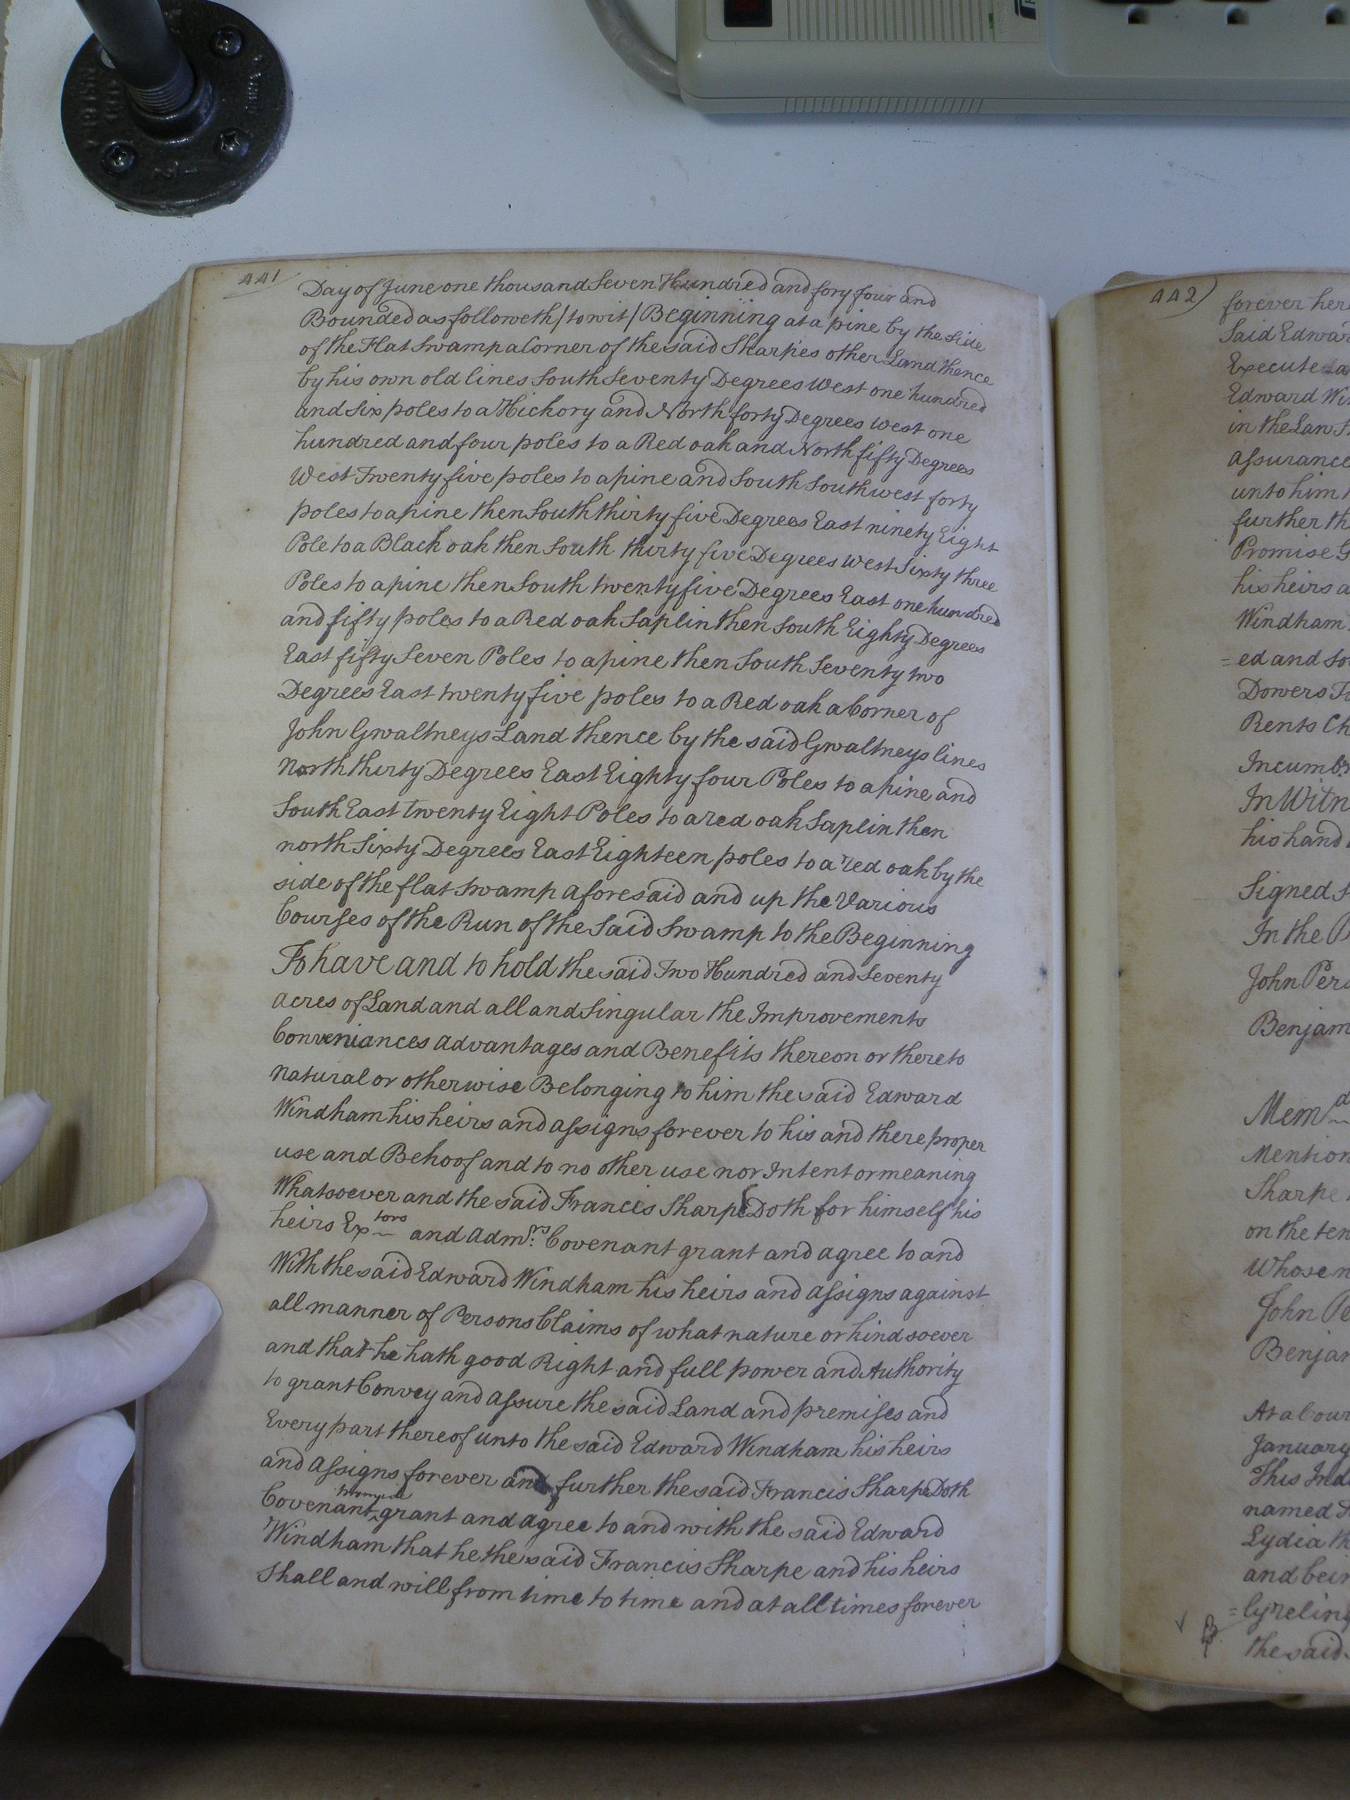 441
Day of June one thousand Seven Hundred and fory four and
Bounded as followeth / to wit / Beginning at a pine by the Side
of the Flat Swamp a Corner of the said Sharpes other Land thence
by his own old lines South Seventy Degrees West one hundred
and six poles to a Hickory and North forty Degrees West one
hundred and four poles to a Red oak and North fifty Degrees
West Twenty five poles to a pine and South Southwest forty
poles to a pine then South thirty five Degrees East ninety Eight
Pole to a Black oak then South thirty five Degrees West Sixty three
Poles to a pine then South twenty five Degrees East one hundred
and fifty poles to a Red oak Saplin then South Eighty Degrees
East fifty Seven Poles to a pine then South Seventy two
Degrees East twenty five poles to a Red oak a Corner of
John Gwaltneys Land thence by the said Gwaltneys lines
North thirty Degrees East Eighty four Poles to a pine and
South East twenty Eight Poles to a red oak Saplin then
north Sixty Degrees East Eighteen poles to a red oak by the
side of the flat Swamp aforesaid and up the Various
Courses of the Run of the Said Swamp to the Beginning
To have and to hold the said Two Hundred and Seventy
Acres of Land and all and Singular the Improvements
Conveniances advantages and Benefits thereon or thereto
natural or otherwise Belonging to him the said Edward
Windham his heirs and assigns forever to his and there proper
use and Behoof and to no other use nor Intent or meaning
Whatsoever and the said Francis Sharpe Doth for himself his
heirs Extors and Admrs. Covenant grant and agree to and
With the said Edward Windham his heirs and assigns against
all manner of Persons Claims of what nature or kind soever
and that he hath good Right and full power and Authority
to grant Convey and assure the said Land and premises and
Every part thereof unto the said Edward Windham his heirs
and assigns forever and further the said Francis Sharpe Doth
Covenant grant and agree to and with the said Edward
Windham that he the said Francis Sharpe and his heirs
Shall and will from time to time and at all times forever
442)
forever
Said
Execute
Edward
in the Law
assurance
unto him
further
Promise
his heirs
Windham
=ed and
Dowers
Rents
Incumb
In Witn
his hand
Signed
In the
John
Benjam
Memd
Mention
Sharpe
on the ten
Whose
John
Benjam
At a Cour
January
This Ind
named
Lydia
and bein
=ly relin
the said